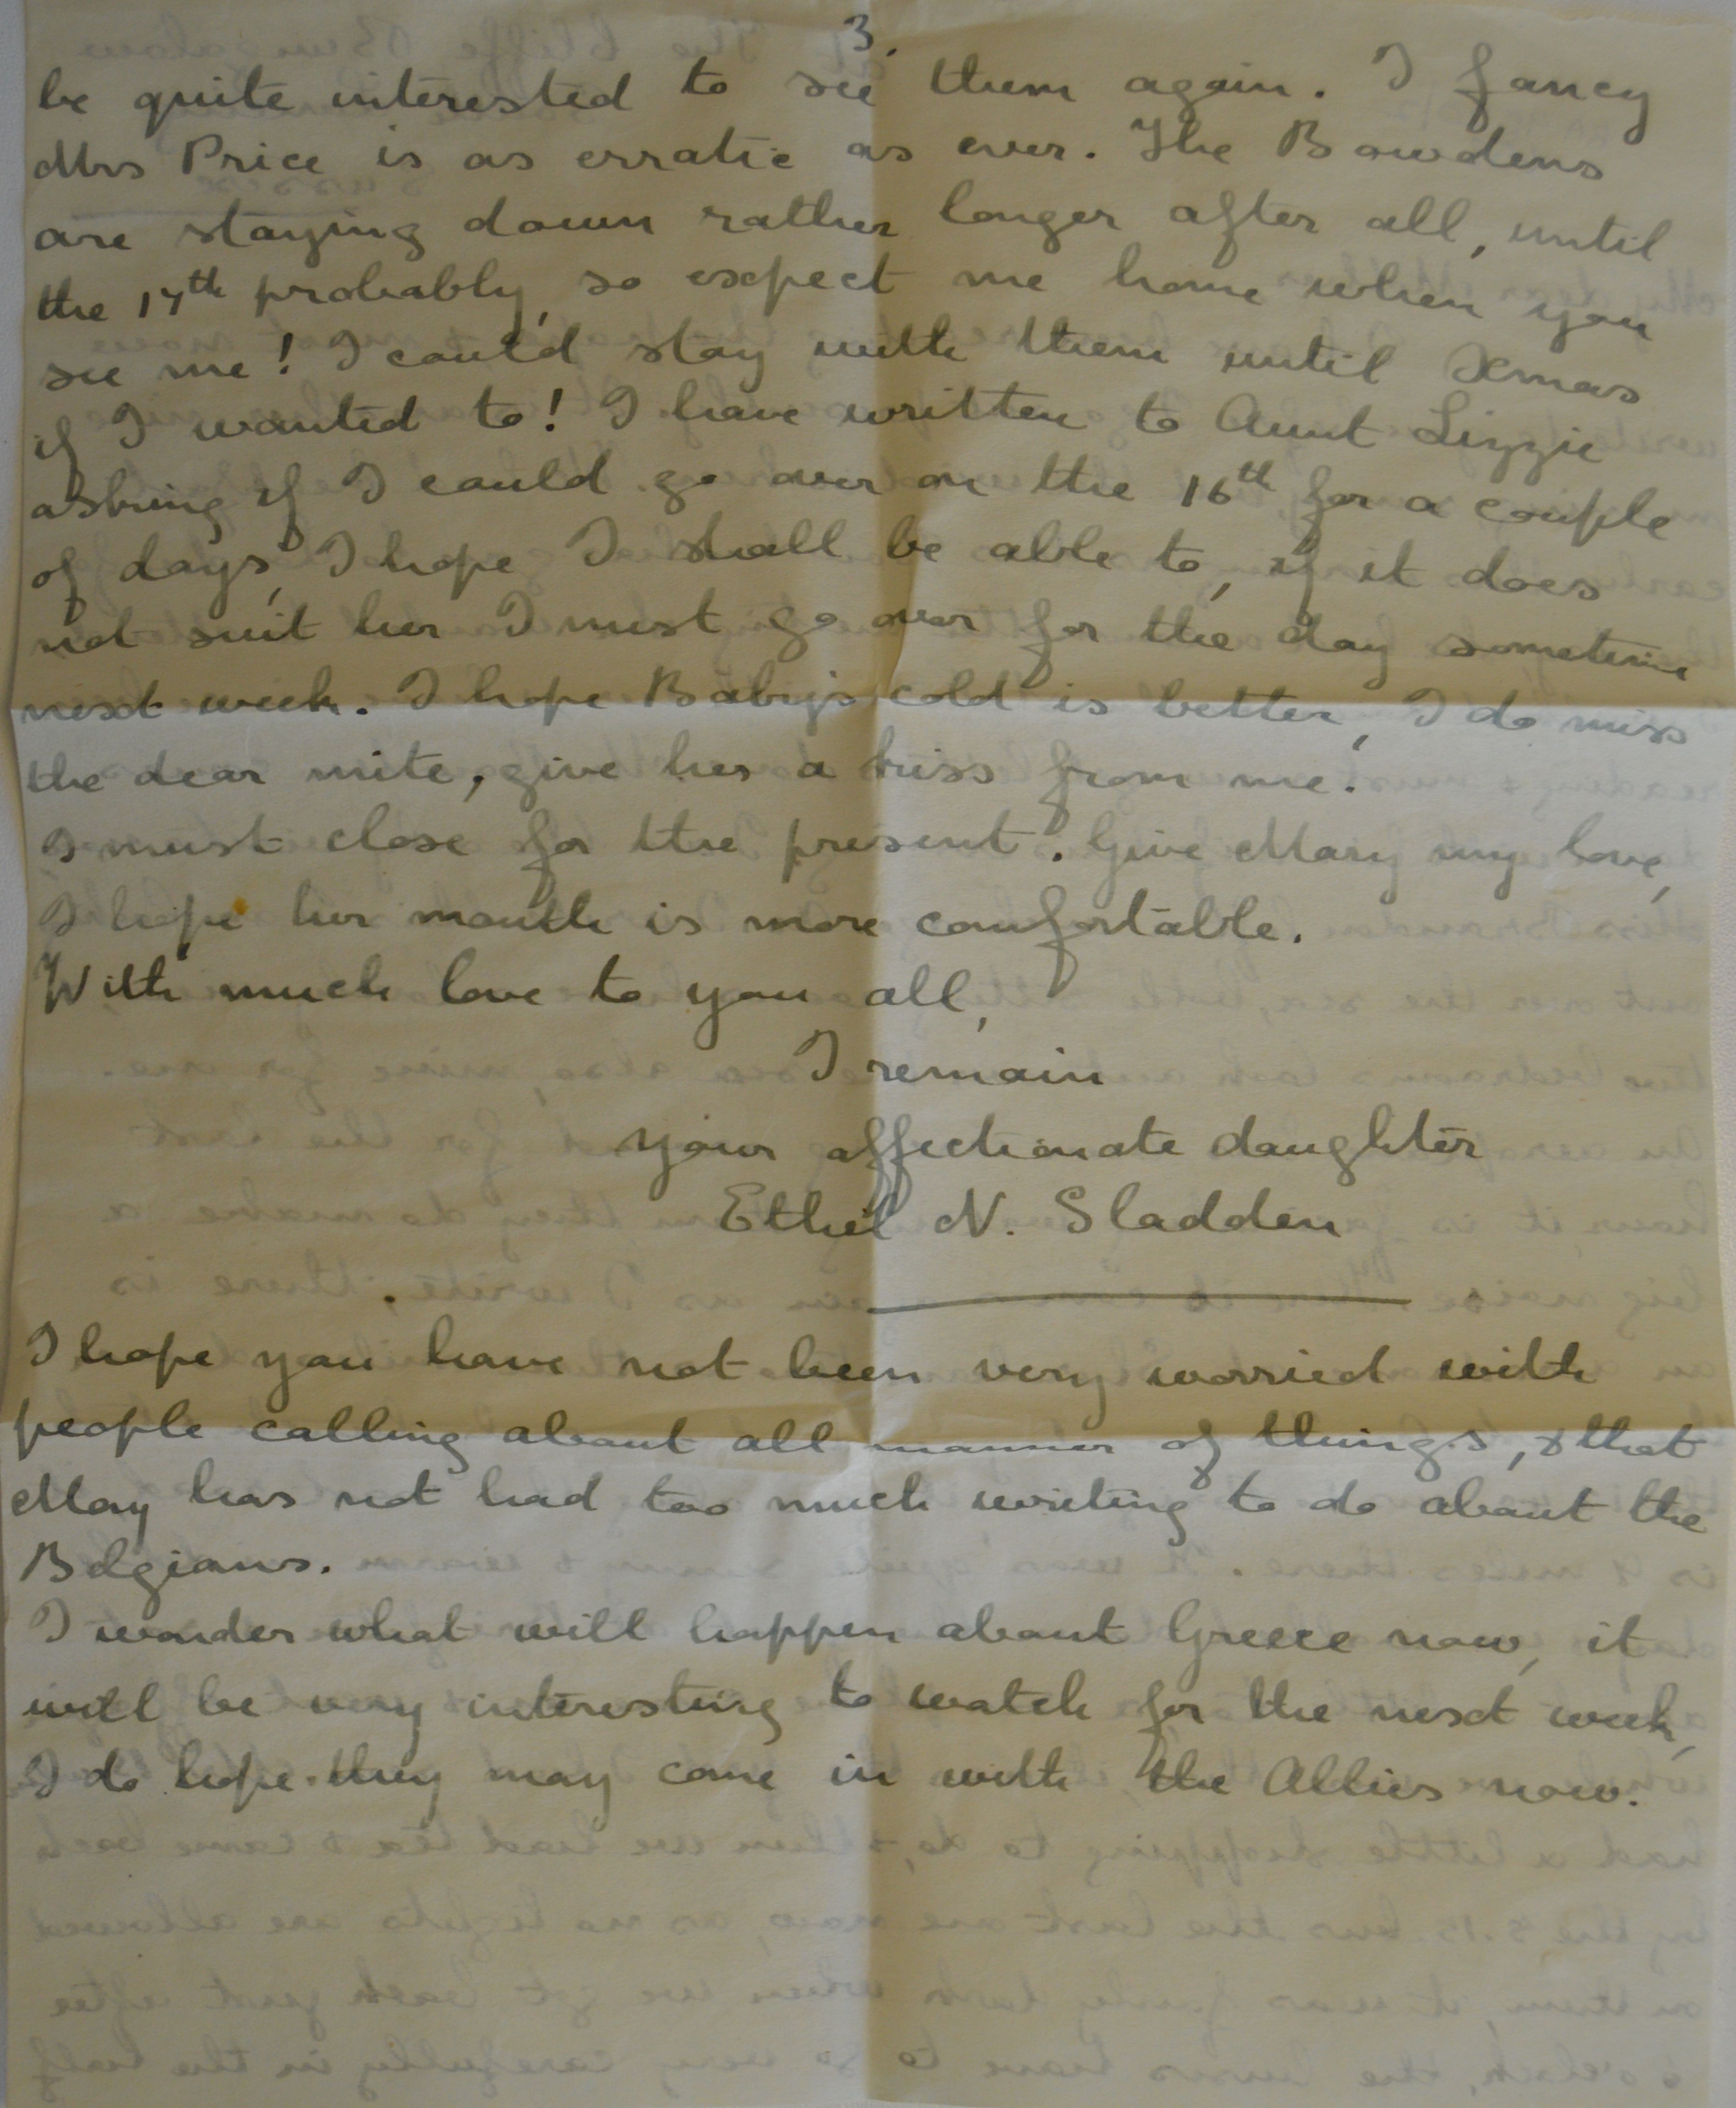 3.
be quite interested to see them again. I fancy
Mrs Price is as erratic as ever. The Bowdens
are staying down rather longer after all, until
the 17th probably, so expect me home when you
see me! I could stay with them until Xmas
if I wanted to! I have written to Aunt Lizzie
asking if I could go over on the 16th for a couple
of days, I hope I shall be able to, if it does
not suit her I must go over for the day sometime
next week. I hope Baby's cold is better, I do miss
the dear mite, give her a kiss from me.
I must close for the present. Give Mary my love,
I hope her mouth is more comfortable.
With much love to you all,
I remain
your affectionate daughter
Ethel N. Sladden
I hope you have not been very worried with
people calling about all manner of things, & that
May has not had too much writing to do about the
Belgians.
I wonder what will happen about Greece now, it
will be very interesting to watch for the next week,
I do hope they may come in with the Allies now.